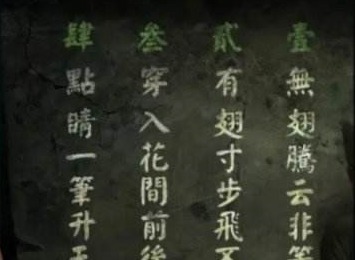 壹無翅騰云非
貳有翅寸步飛
叁穿入花間前後
肆點睛一筆升